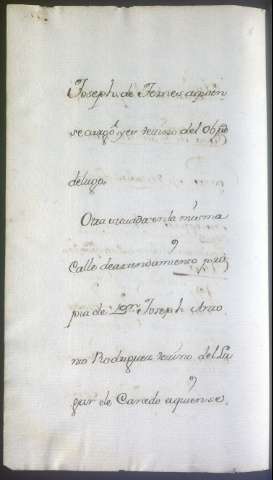 Joseph de Temes aquien
se cargó y es vecino del Obpdo
delugo.
Otra situada en la misma
Calle de arrendamiento pro
pia de Dn Joseph Anto
nio Rodriguez vecino del Lu
gar de Canedo aquien se